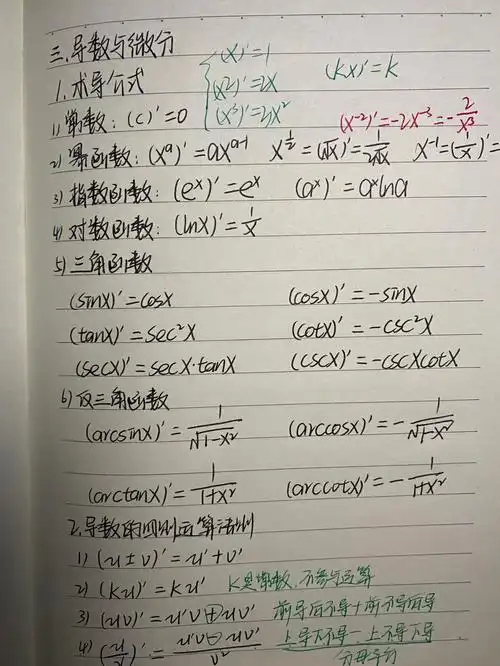 三.导数与微分
1.求导公式
(x)'=1
(x2)'=2x
(x³)'=3x²
(kx)'=k
1)常数：(c)'=0
(x⁻²)'=-2x⁻³=-2/x³
2)幂函数：(xᵃ)'=axᵃ⁻¹ x^½=(√x)'=1/2√x x⁻¹=(1/x)'=
3)指数函数：(eˣ)'=eˣ (aˣ)'=aˣlna
4)对数函数：(lnx)'=1/x
5)三角函数
(sinx)'=cosx (cosx)'=-sinx
(tanx)'=sec²x (cotx)'=-csc²x
(secx)'=secx·tanx (cscx)'=-cscxcotx
6)反三角函数
(arcsinx)'=1/√1-x² (arccosx)'=-1/√1-x²
(arctanx)'=1/1+x² (arccotx)'=-1/1+x²
2.导数的四则运算法则
1)(u±v)'=u'+v'
2)(ku)'=ku' k是常数,不参与运算
3)(uv)'=u'v+uv' 前导后不导+前不导后导
4)(u/v)'=u'v-uv'/v² 上导下不导-上不导下导
分母平方